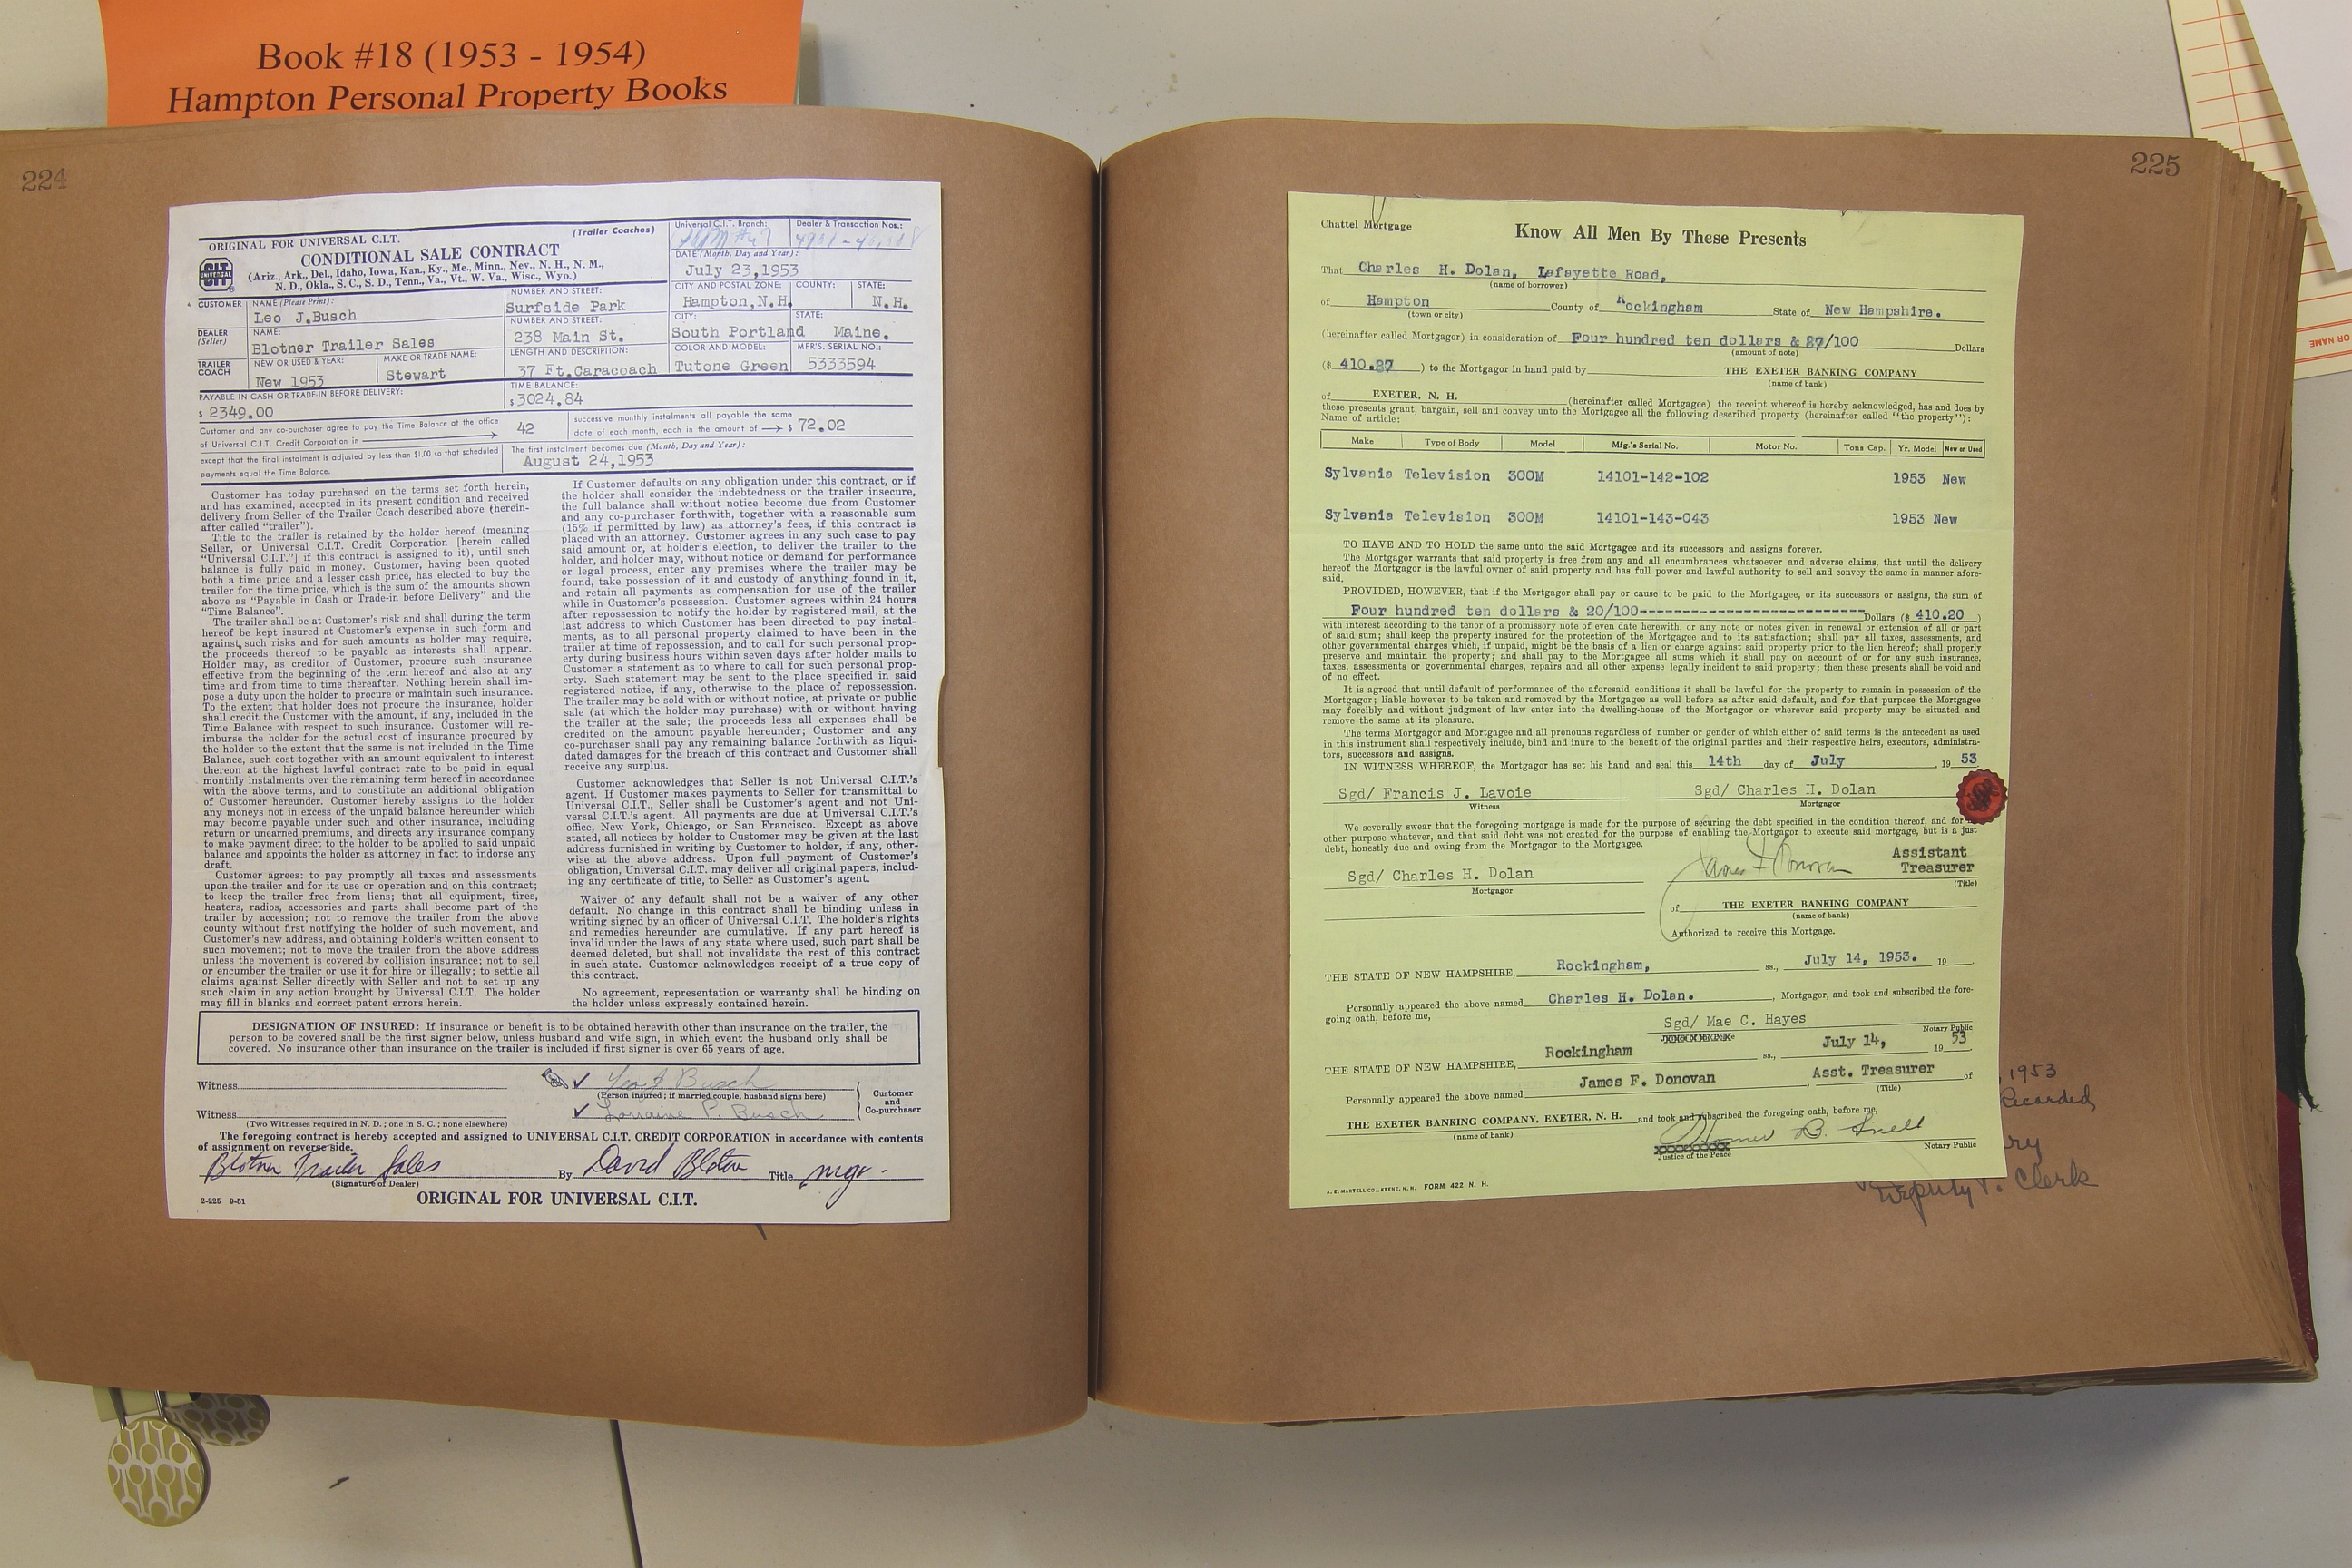 Book #18 (1953 - 1954)
Hampton Personal Property Books
224
ORIGINAL FOR UNIVERSAL C.I.T.
(Trailer Coaches)
CONDITIONAL SALE CONTRACT
(Ariz., Ark., Del., Idaho, Iowa, Kan., Ky., Me., Minn., Nev., N. H., N. M.,
N. D., Okla., S. C., S. D., Tenn., Va., Vt., W. Va., Wisc., Wyo.)
CIT
UNIVERSAL
Universal C.I.T. Branch:
Dealer & Transaction Nos.:
DATE (Month, Day and Year):
July 23,1953
CUSTOMER
NAME (Please Print):
Leo J.Busch
NUMBER AND STREET:
Surfside Park
CITY AND POSTAL ZONE:
Hampton,N.H.
COUNTY:
STATE:
N.H.
DEALER
(Seller)
NAME:
Blotner Trailer Sales
NUMBER AND STREET:
238 Main St.
CITY:
South Portland
STATE:
Maine.
TRAILER
COACH
NEW OR USED & YEAR:
New 1953
MAKE OR TRADE NAME:
Stewart
LENGTH AND DESCRIPTION:
37 Ft.Caracoach
COLOR AND MODEL:
Tutone Green
MFR'S. SERIAL NO.:
5333594
PAYABLE IN CASH OR TRADE-IN BEFORE DELIVERY:
$ 2349.00
TIME BALANCE:
$3024.84
Customer and any co-purchaser agree to pay the Time Balance at the office
of Universal C.I.T. Credit Corporation in
42
successive monthly instalments all payable the same
date of each month, each in the amount of → $ 72.02
except that the final instalment is adjusted by less than $1.00 so that scheduled
payments equal the Time Balance.
The first instalment becomes due (Month, Day and Year):
August 24,1953
Customer has today purchased on the terms set forth herein,
and has examined, accepted in its present condition and received
delivery from Seller of the Trailer Coach described above (herein-
after called "trailer").
Title to the trailer is retained by the holder hereof (meaning
Seller, or Universal C.I.T. Credit Corporation [herein called
"Universal C.I.T."] if this contract is assigned to it), until such
balance is fully paid in money. Customer, having been quoted
both a time price and a lesser cash price, has elected to buy the
trailer for the time price, which is the sum of the amounts shown
above as "Payable in Cash or Trade-in before Delivery" and the
"Time Balance".
The trailer shall be at Customer's risk and shall during the term
hereof be kept insured at Customer's expense in such form and
against such risks and for such amounts as holder may require,
the proceeds thereof to be payable as interests shall appear.
Holder may, as creditor of Customer, procure such insurance
effective from the beginning of the term hereof and also at any
time and from time to time thereafter. Nothing herein shall im-
pose a duty upon the holder to procure or maintain such insurance.
To the extent that holder does not procure the insurance, holder
shall credit the Customer with the amount, if any, included in the
Time Balance with respect to such insurance. Customer will re-
imburse the holder for the actual cost of insurance procured by
the holder to the extent that the same is not included in the Time
Balance, such cost together with an amount equivalent to interest
thereon at the highest lawful contract rate to be paid in equal
monthly instalments over the remaining term hereof in accordance
with the above terms, and to constitute an additional obligation
of Customer hereunder. Customer hereby assigns to the holder
any moneys not in excess of the unpaid balance hereunder which
may become payable under such and other insurance, including
return or unearned premiums, and directs any insurance company
to make payment direct to the holder to be applied to said unpaid
balance and appoints the holder as attorney in fact to indorse any
draft.
Customer agrees: to pay promptly all taxes and assessments
upon the trailer and for its use or operation and on this contract;
to keep the trailer free from liens; that all equipment, tires,
heaters, radios, accessories and parts shall become part of the
trailer by accession; not to remove the trailer from the above
county without first notifying the holder of such movement, and
Customer's new address, and obtaining holder's written consent to
such movement; not to move the trailer from the above address
unless the movement is covered by collision insurance; not to sell
or encumber the trailer or use it for hire or illegally; to settle all
claims against Seller directly with Seller and not to set up any
such claim in any action brought by Universal C.I.T. The holder
may fill in blanks and correct patent errors herein.
If Customer defaults on any obligation under this contract, or if
the holder shall consider the indebtedness or the trailer insecure,
the full balance shall without notice become due from Customer
and any co-purchaser forthwith, together with a reasonable sum
(15% if permitted by law) as attorney's fees, if this contract is
placed with an attorney. Customer agrees in any such case to pay
said amount or, at holder's election, to deliver the trailer to the
holder, and holder may, without notice or demand for performance
or legal process, enter any premises where the trailer may be
found, take possession of it and custody of anything found in it,
and retain all payments as compensation for use of the trailer
while in Customer's possession. Customer agrees within 24 hours
after repossession to notify the holder by registered mail, at the
last address to which Customer has been directed to pay instal-
ments, as to all personal property claimed to have been in the
trailer at time of repossession, and to call for such personal prop-
erty during business hours within seven days after holder mails to
Customer a statement as to where to call for such personal prop-
erty. Such statement may be sent to the place specified in said
registered notice, if any, otherwise to the place of repossession.
The trailer may be sold with or without notice, at private or public
sale (at which the holder may purchase) with or without having
the trailer at the sale; the proceeds less all expenses shall be
credited on the amount payable hereunder; Customer and any
co-purchaser shall pay any remaining balance forthwith as liqui-
dated damages for the breach of this contract and Customer shall
receive any surplus.
Customer acknowledges that Seller is not Universal C.I.T.'s
agent. If Customer makes payments to Seller for transmittal to
Universal C.I.T., Seller shall be Customer's agent and not Uni-
versal C.I.T.'s agent. All payments are due at Universal C.I.T.'s
office, New York, Chicago, or San Francisco. Except as above
stated, all notices by holder to Customer may be given at the last
address furnished in writing by Customer to holder, if any, other-
wise at the above address. Upon full payment of Customer's
obligation, Universal C.I.T. may deliver all original papers, includ-
ing any certificate of title, to Seller as Customer's agent.
Waiver of any default shall not be a waiver of any other
default. No change in this contract shall be binding unless in
writing signed by an officer of Universal C.I.T. The holder's rights
and remedies hereunder are cumulative. If any part hereof is
invalid under the laws of any state where used, such part shall be
deemed deleted, but shall not invalidate the rest of this contract
in such state. Customer acknowledges receipt of a true copy of
this contract.
No agreement, representation or warranty shall be binding on
the holder unless expressly contained herein.
DESIGNATION OF INSURED: If insurance or benefit is to be obtained herewith other than insurance on the trailer, the
person to be covered shall be the first signer below, unless husband and wife sign, in which event the husband only shall be
covered. No insurance other than insurance on the trailer is included if first signer is over 65 years of age.
Witness
Leo J. Busch
(Person insured; if married couple, husband signs here)
Witness
Lorraine P. Busch
Customer
and
Co-purchaser
(Two Witnesses required in N. D.; one in S. C.; none elsewhere)
The foregoing contract is hereby accepted and assigned to UNIVERSAL C.I.T. CREDIT CORPORATION in accordance with contents
of assignment on reverse side.
Blotner Trailer Sales By David Blotner Title mgr.
(Signature of Dealer)
2-225 9-51
ORIGINAL FOR UNIVERSAL C.I.T.
225
Chattel Mortgage
Know All Men By These Presents
That Charles H. Dolan, Lafayette Road,
(name of borrower)
of Hampton County of Rockingham State of New Hampshire.
(town or city)
(hereinafter called Mortgagor) in consideration of Four hundred ten dollars & 87/100 Dollars
(amount of note)
($ 410.87 ) to the Mortgagor in hand paid by THE EXETER BANKING COMPANY
(name of bank)
of EXETER, N. H. (hereinafter called Mortgagee) the receipt whereof is hereby acknowledged, has and does by
these presents grant, bargain, sell and convey unto the Mortgagee all the following described property (hereinafter called "the property"):
Name of article:
Make Type of Body Model Mfg.'s Serial No. Motor No. Tons Cap. Yr. Model New or Used
Sylvania Television 300M 14101-142-102 1953 New
Sylvania Television 300M 14101-143-043 1953 New
TO HAVE AND TO HOLD the same unto the said Mortgagee and its successors and assigns forever.
The Mortgagor warrants that said property is free from any and all encumbrances whatsoever and adverse claims, that until the delivery
hereof the Mortgagor is the lawful owner of said property and has full power and lawful authority to sell and convey the same in manner afore-
said,
PROVIDED, HOWEVER, that if the Mortgagor shall pay or cause to be paid to the Mortgagee, or its successors or assigns, the sum of
Four hundred ten dollars & 20/100-------------------------Dollars ($ 410.20 )
with interest according to the tenor of a promissory note of even date herewith, or any note or notes given in renewal or extension of all or part
of said sum; shall keep the property insured for the protection of the Mortgagee and to its satisfaction; shall pay all taxes, assessments, and
other governmental charges which, if unpaid, might be the basis of a lien or charge against said property prior to the lien hereof; shall properly
preserve and maintain the property; and shall pay to the Mortgagee all sums which it shall pay on account of or for any such insurance,
taxes, assessments or governmental charges, repairs and all other expense legally incident to said property; then these presents shall be void and
of no effect.
It is agreed that until default of performance of the aforesaid conditions it shall be lawful for the property to remain in possession of the
Mortgagor; liable however to be taken and removed by the Mortgagee as well before as after said default, and for that purpose the Mortgagee
may forcibly and without judgment of law enter into the dwelling-house of the Mortgagor or wherever said property may be situated and
remove the same at its pleasure.
The terms Mortgagor and Mortgagee and all pronouns regardless of number or gender of which either of said terms is the antecedent as used
in this instrument shall respectively include, bind and inure to the benefit of the original parties and their respective heirs, executors, administra-
tors, successors and assigns.
IN WITNESS WHEREOF, the Mortgagor has set his hand and seal this 14th day of July , 19 53
Sgd/ Francis J. Lavoie Sgd/ Charles H. Dolan
Witness Mortgagor
We severally swear that the foregoing mortgage is made for the purpose of securing the debt specified in the condition thereof, and for
other purpose whatever, and that said debt was not created for the purpose of enabling the Mortgagor to execute said mortgage, but is a just
debt, honestly due and owing from the Mortgagor to the Mortgagee.
Sgd/ Charles H. Dolan James F Donovan Assistant
Treasurer
Mortgagor (Title)
of THE EXETER BANKING COMPANY
(name of bank)
Authorized to receive this Mortgage.
THE STATE OF NEW HAMPSHIRE, Rockingham, ss., July 14, 1953. 19
Personally appeared the above named Charles H. Dolan. , Mortgagor, and took and subscribed the fore-
going oath, before me,
Sgd/ Mae C. Hayes
Notary Public
THE STATE OF NEW HAMPSHIRE, Rockingham ss., July 14, 19 53
Personally appeared the above named James F. Donovan , Asst. Treasurer of
(Title)
THE EXETER BANKING COMPANY, EXETER, N. H. and took and subscribed the foregoing oath, before me,
(name of bank)
Homer B. Snell
Justice of the Peace Notary Public
A. E. MARTELL CO., KEENE, N. H. FORM 422 N. H.
, 1953
Recorded,
ry
Deputy T. Clerk
OR NAME